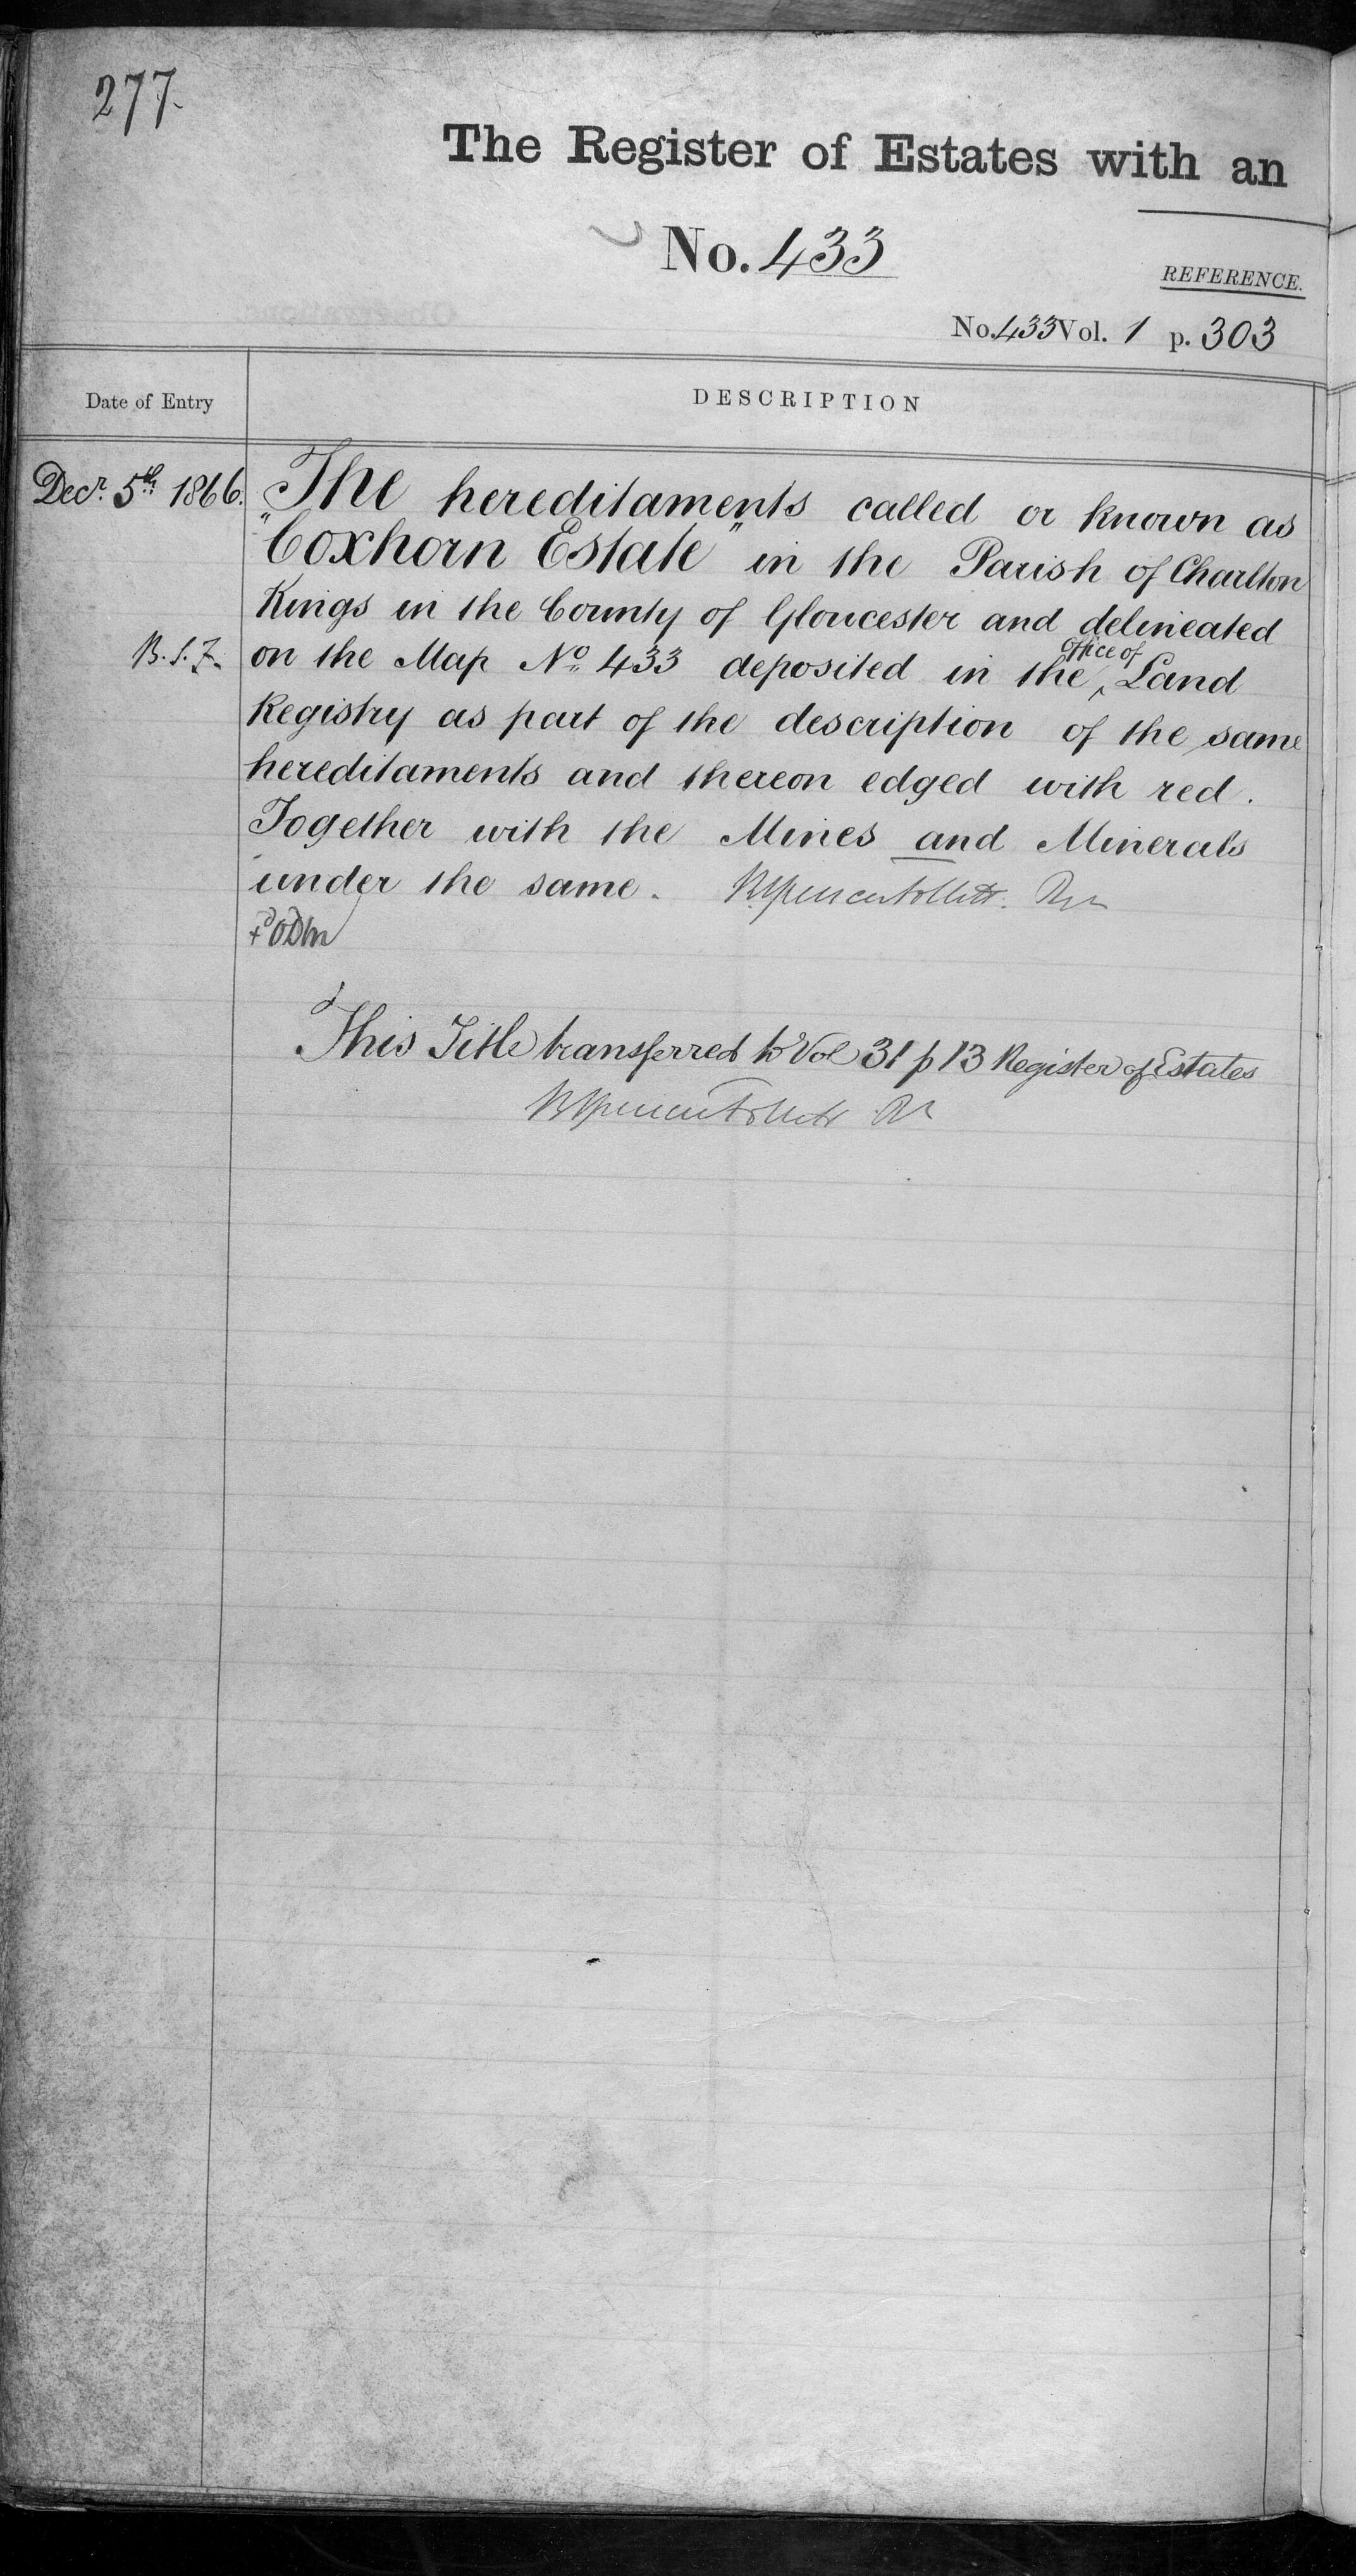 277.
The Register of Estates with an
No. 433
REFERENCE.
No. 433 Vol. 1 p. 303
Date of Entry
DESCRIPTION
Decr. 5th 1866.
The hereditaments called or known as
"Coxhorn Estate" in the Parish of Charlton
Kings in the County of Gloucester and delineated
B.S.F.
office of
on the Map No. 433 deposited in the ‸ Land
Registry as part of the description of the same
hereditaments and thereon edged with red.
Together with the Mines and Minerals
under the same. B. Spencer Follett. Rr
This Title transferred to Vol 31 p 13 Register of Estates
B Spencer Follett Rr